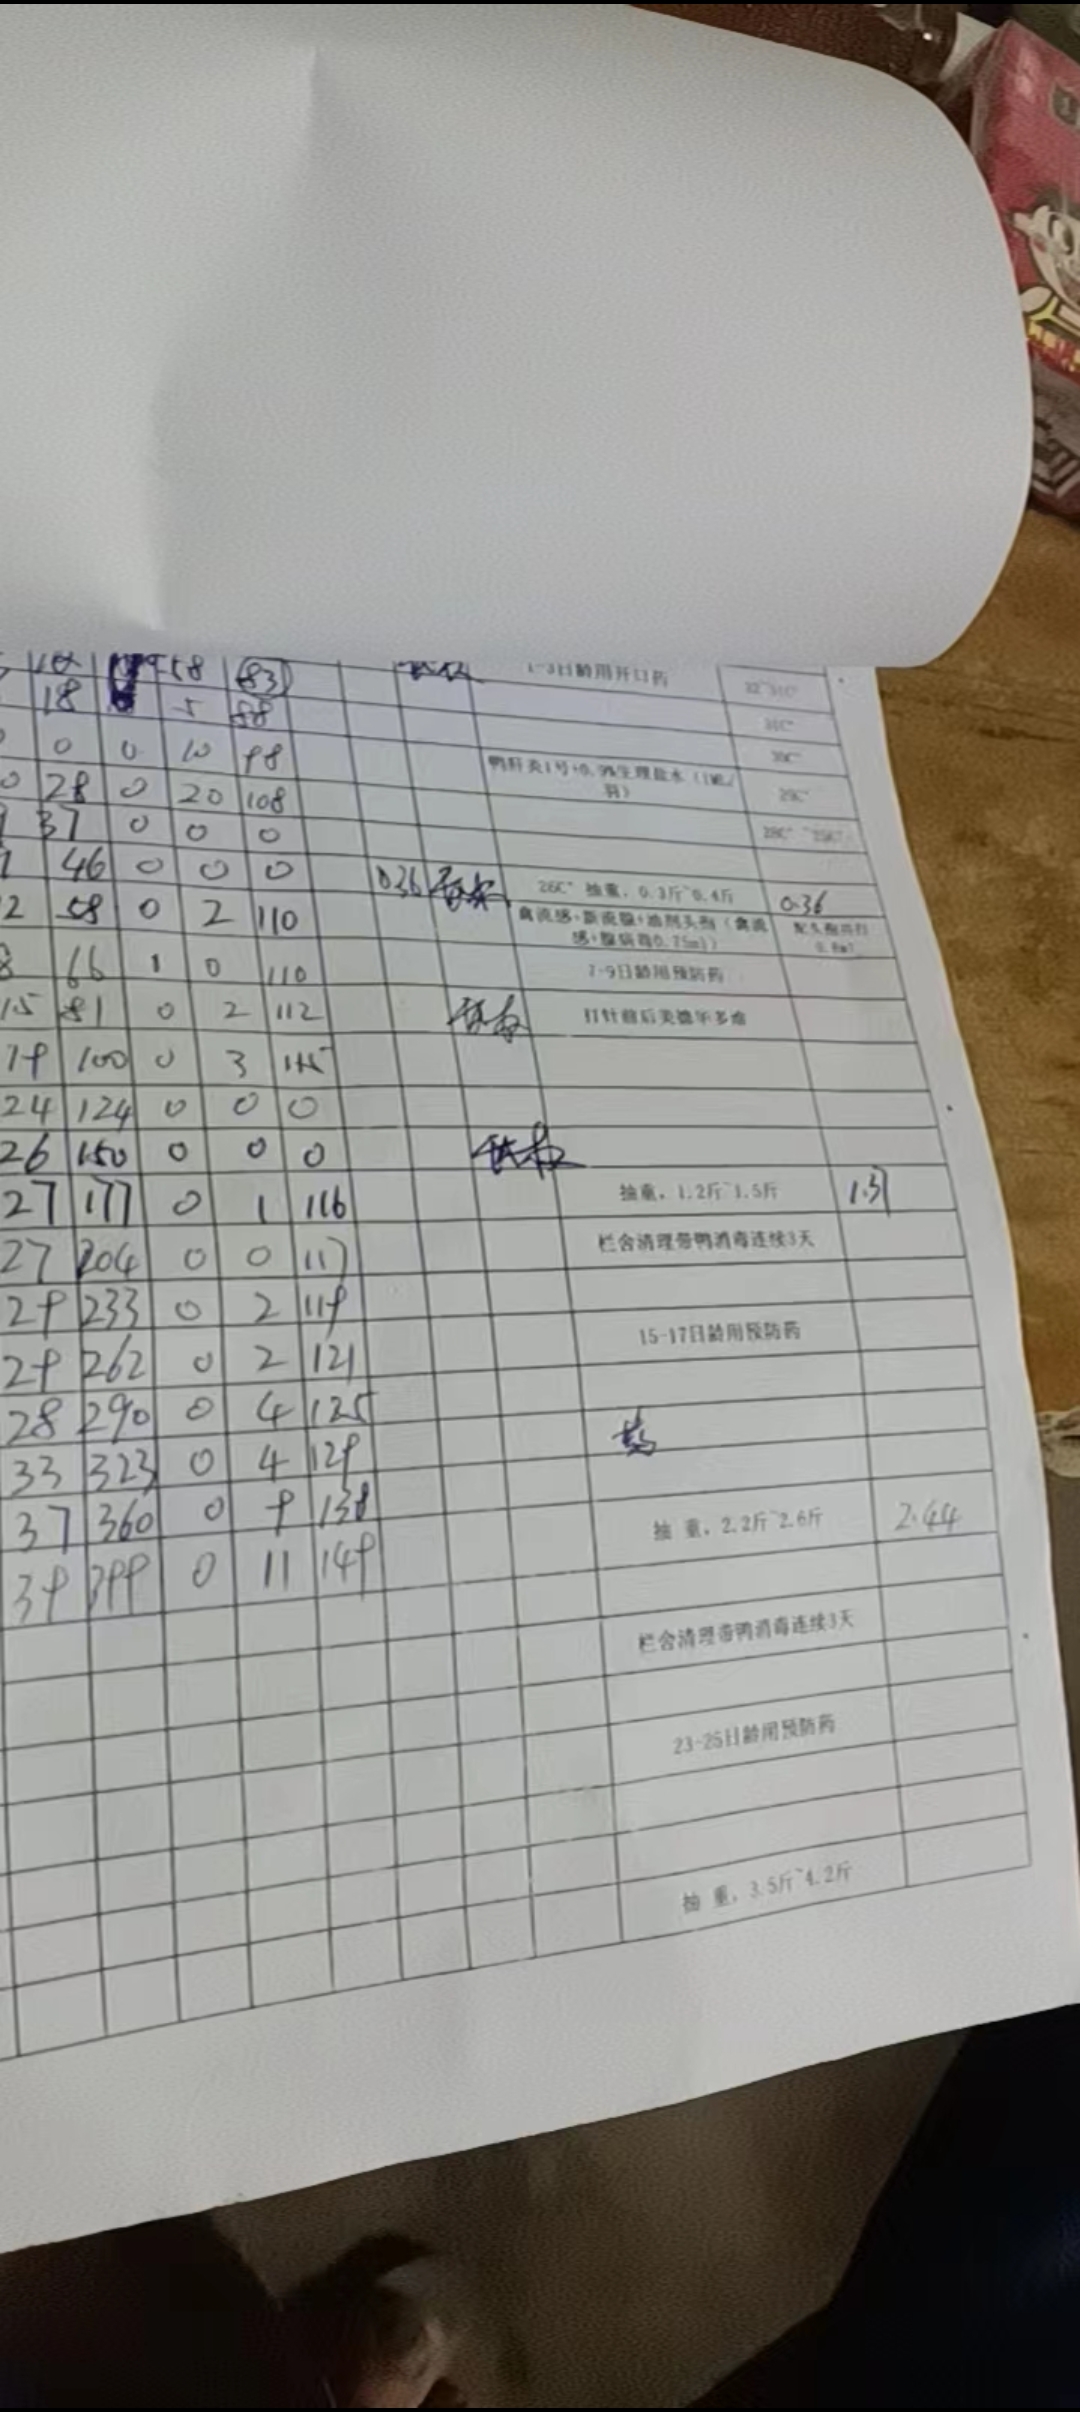 58 83 1-3日龄用开口药 32~31C°
18 5 88 31C°
0 0 10 98 30C°
0 28 0 20 108 鸭肝炎1号+0.9%生理盐水(1ML/羽) 29C°
37 0 0 0
46 0 0 0 0.36 26C° 抽重,0.3斤~0.4斤 0.36
2 58 0 2 110 禽流感+新流腺+油剂头孢(禽流感+腺病毒0.75ml)
8 66 1 0 110 7-9日龄用预防药
15 81 0 2 112 打针前后
19 100 0 3 115
24 124 0 0 0
26 150 0 0 0
27 177 0 1 116 抽重,1.2斤~1.5斤 1.31
27 204 0 0 117 栏舍清理带鸭消毒连续3天
29 233 0 2 119
29 262 0 2 121 15-17日龄用预防药
28 290 0 4 125
33 323 0 4 129 药
37 360 0 9 138
39 399 0 11 149 抽 重,2.2斤~2.6斤 2.44
栏舍清理带鸭消毒连续3天
23-25日龄用预防药
抽 重,3.5斤~4.2斤